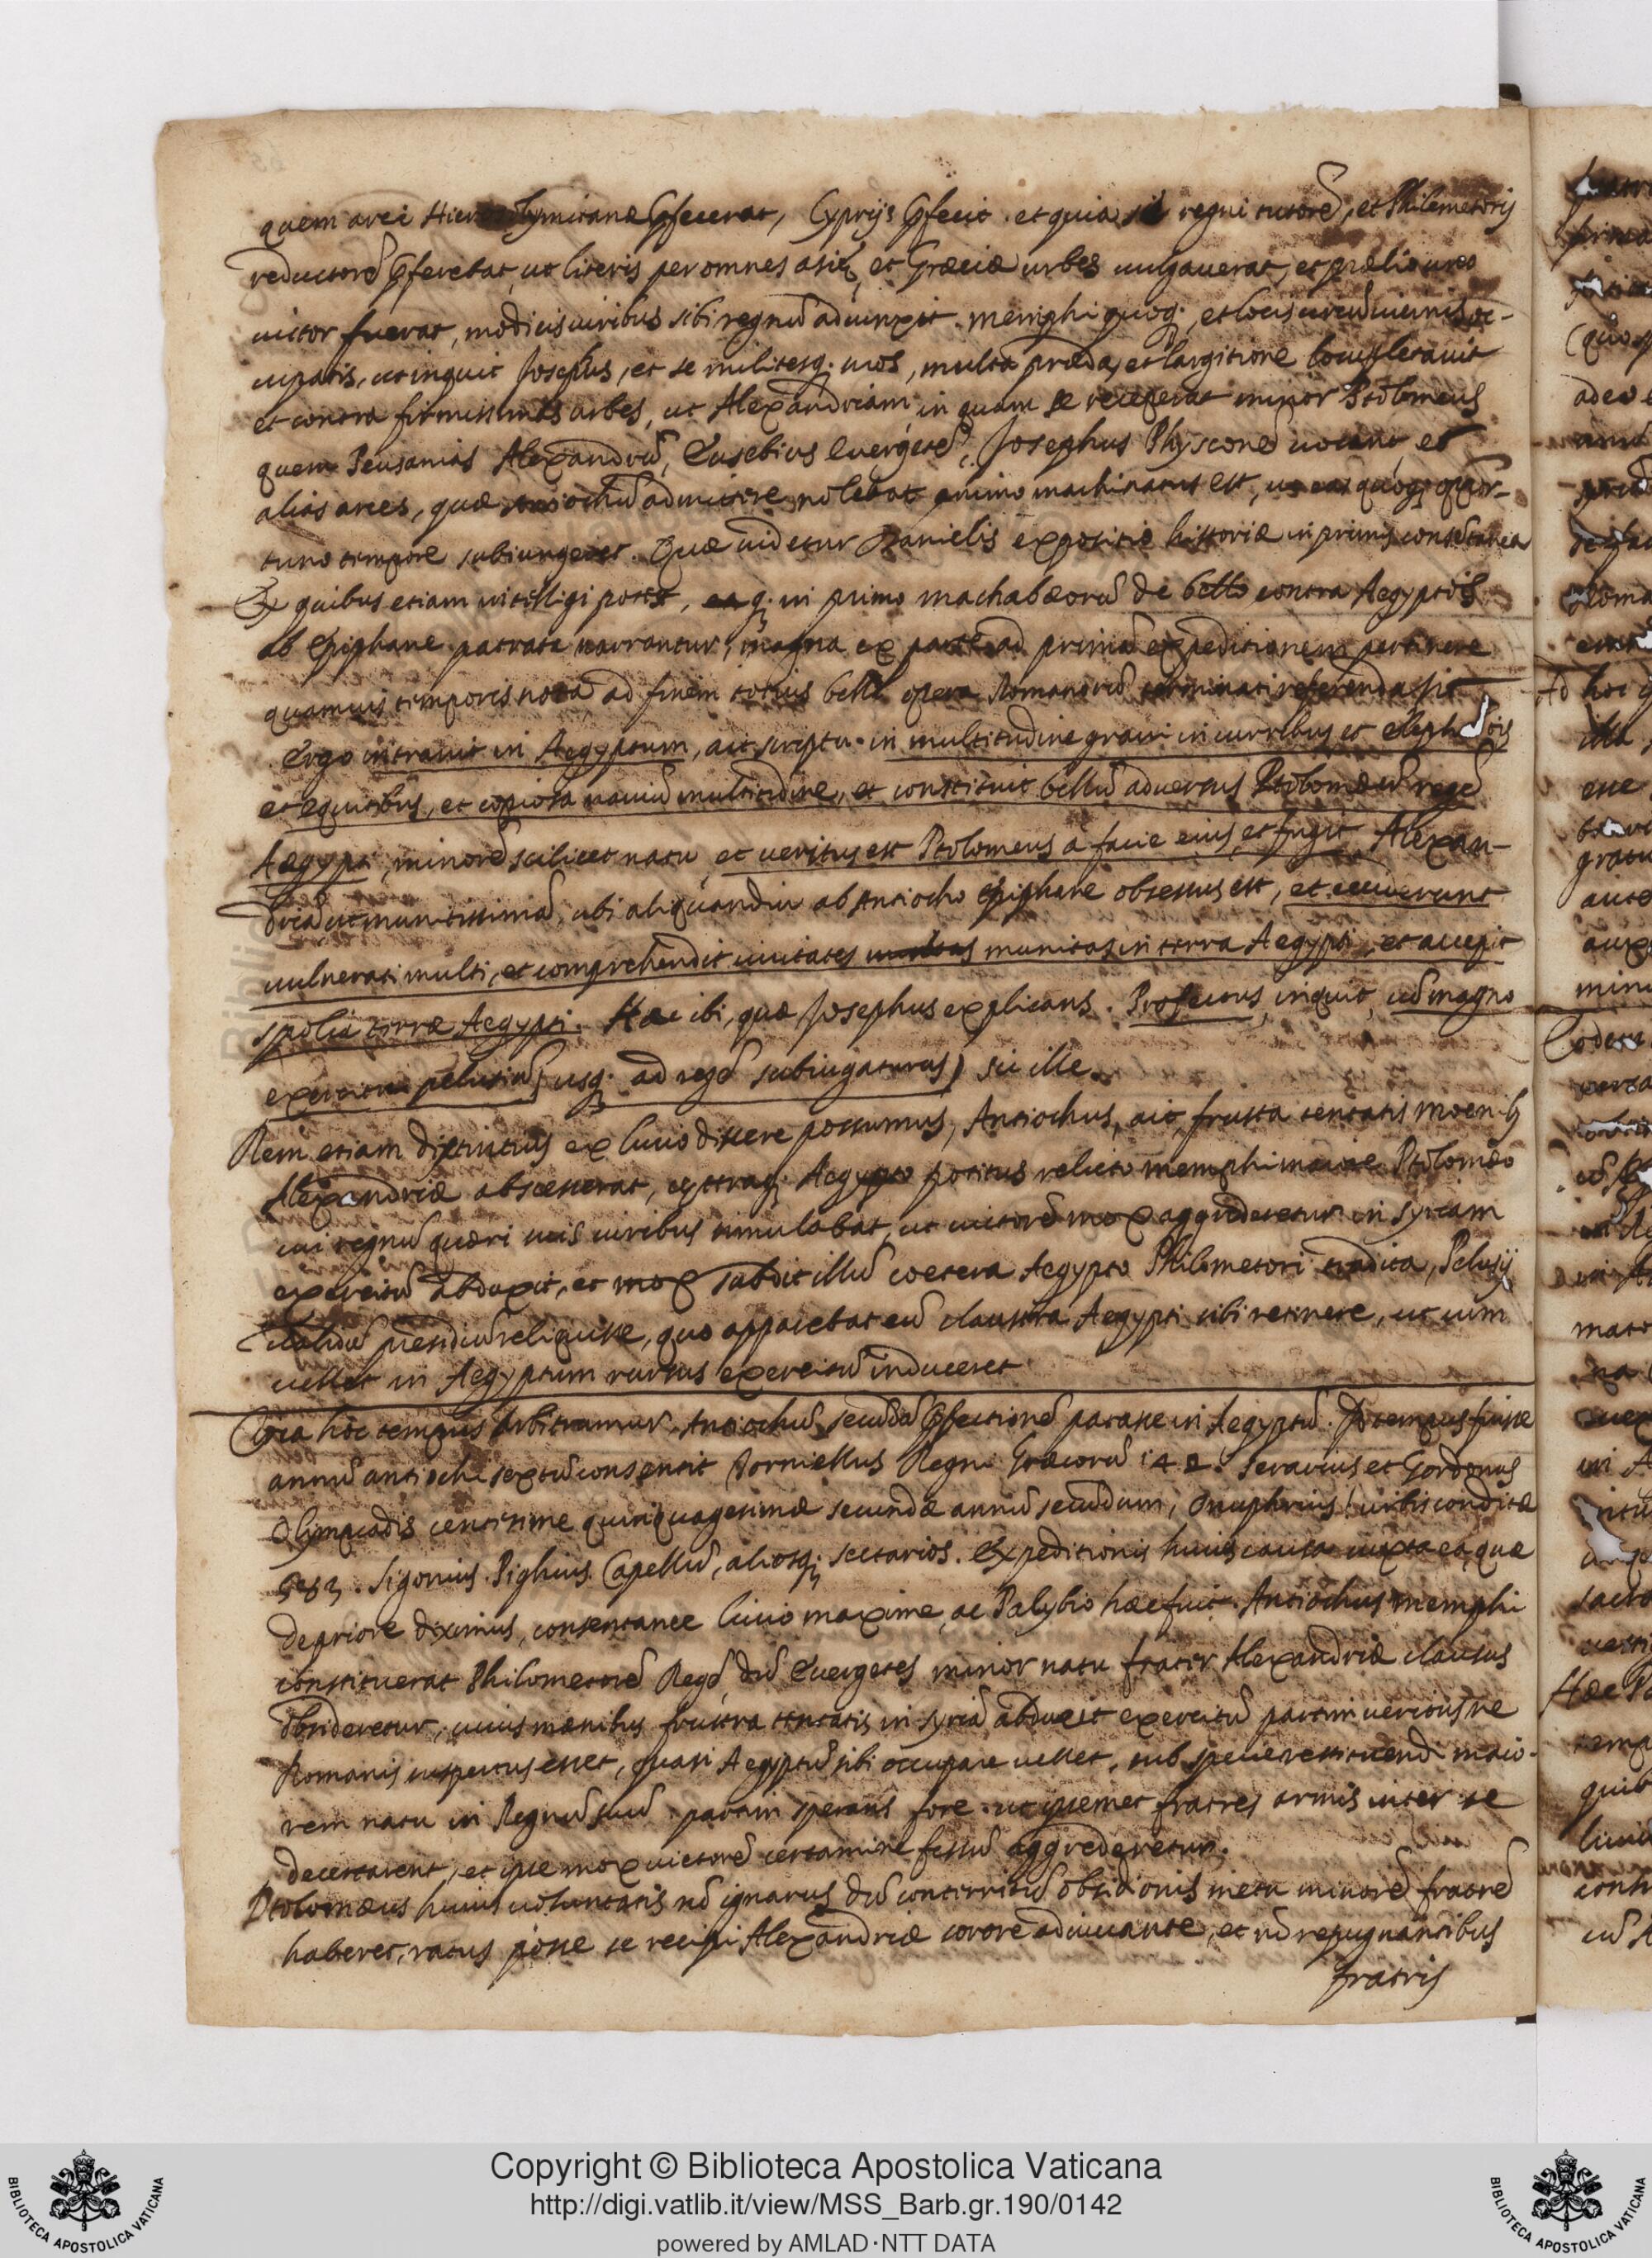 quem arci Hierosolymitanæ p̱fecerat, Cyprijs p̱fecit et quia se regni tutorē, et Philometoris
reductorē p̱ferebat, ut literis per omnes asię, et Græciæ urbes uulgauerat, et prælio uno
uictor fuerat, modicis uiribus sibi regnū adiunxit. memphi quoq;, et locis circūuicinis oc-
cupatis, ut inquit Josephus, et se militesq; suos, multa præda, et largitione locupletauit
et contra firmissimas urbes, ut Alexandriam in quam se receperat minor Ptolomeus
quem Pausanias Alexandrū, Eusebius Euergetē, Josephus Physconē uocant et
alias arces, quæ Antiochū admittere nolebat animo machinatus est, ut eas quoq; oppor-
tuno tempore subiungeret. Quæ uidetur Danielis expositio historiæ in primis consentanea
Ex quibus etiam intelligi potest, ea q; in primo machabæorū de bello contra Aegyptios
ab Epiphane patrata narrantur, magna ex parte ad primā expeditionem pertinere
quamuis temporis nota ad finem totius belli opera Romanorū terminati referenda sit
Ergo intrauit in Aegyptum, ait scriptu. in multitudine graui in curribus et elephātis
et equitibus, et copiosa nauiū multitudine, et constituit bellū aduersus Ptolomæū regē
Aegypti, minorē scilicet natu, et ueritus est Ptolomeus a facie eius, et fugit Alexan-
driā ut munitissimā, ubi aliquandiu ab Antiocho Epiphane obsessus est, et ceciderunt
uulnerati multi, et comprehendit ciuitates multas munitas in terra Aegypti, et accepit
spolia terræ Aegypti. Hæc ibi, quæ Josephus explicans. Profectus, inquit, cū magno
exercitu pelusiū usq; ad regē subiugaturus) sic ille.
Rem etiam distinctius ex liuio discere possumus, Antiochus, ait, frustra tentatis moenib;
Alexandriæ abscesserat, cętraq; Aegypto potitus relicto memphi maiore Ptolomæo
cui regnū quæri suis uiribus simulabat, ut uictorē mox aggrederetur in syriam
exercitū abduxit, et mox subdit illū coetera Aegypto Philometori tradita, Pelusij
ualidū presidiū reliquisse, quo apparebat eū claustra Aegypti sibi retinere, ut cum
uellet in Aegyptum rursus exercitū induceret
Circa hoc tempus arbitramur Antiochū secūdā p̱fectionē parasse in Aegyptū. Id tempus fuisse
annū antiochi sextū consentit Torniellus Regni Græcorū 142. Serarius et Gordonus
Olympiadis centesime quinquagesimæ secundæ annū secūdum, Onuphrius urbis conditæ
583. Sigonius. Pighius. Capellū, aliosq; sectarios. Expeditionis huius causa iuxta ea, quæ
de priore diximus, consentanee liuio maxime, ac Polybio hæc fuit. Antiochus memphi
constituerat Philometorē Regē, dū Euergetes minor natu frater Alexandriæ clausus
obsideretur, cuius mænibus frustra tentatis in syriā abduxit exercitū partim ueritus ne
Romanis suspectus esset, quasi Aegyptū sibi occupare uellet, sub specie restituendi maio-
rem natu in Regnū suū. partim sperans fore. ut ipsemet fratres armis inter se
decertarent, et ipse mox uictorē certamine fessū aggrederetur.
Ptolomæus huius uoluntatis nō ignarus dū conterritū obsidionis metu minorē fratrē
haberet, ratus posse se recipi Alexandriæ sorore adiuuante, et nō repugnantibus
fratris
Copyright © Biblioteca Apostolica Vaticana
http://digi.vatlib.it/view/MSS_Barb.gr.190/0142
powered by AMLAD·NTT DATA
BIBLIOTECA APOSTOLICA VATICANA
BIBLIOTECA APOSTOLICA VATICANA